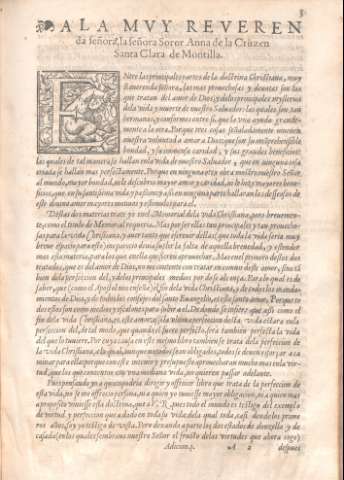 A LA MVY REVEREN
da señora, la señora Soror Anna de la Cruz en
Santa Clara de Montilla.
ENtre las principales partes de la doctrina Christiana, muy
Reuerenda señora, las mas prouechosas y deuotas son las
que tratan del amor de Dios, y de los principales mysterios
de la vida y muerte de nuestro Saluador: las quales son tan
hermanas, y conformes entre si, que lo vno ayuda grande-
mente a lo otro. Porque tres cosas señaladamente mueuen
nuestra voluntad a amar a Dios, que son su incomprehensible
bondad, y su immensa caridad, y sus grandes beneficios:
las quales de tal manera se hallan en la vida de nuestro Saluador, que en ninguna cosa
criada se hallan mas perfectamente. Porque en ninguna otra obra nuestro Señor
al mundo, mayor bondad, ni le descubrio mayor amor y caridad, ni le hizo mayores bene-
ficios, que en su sanctissima vida y passion: y assi en ninguna parte hallaran los desseosos de
este diuino amor mayores motiuos y estimulos para el.
Destas dos materias trate yo en el Memorial de la vida Christiana, pero breuemen-
te, como el titulo de Memorial requeria. Mas por ser estas tan principales y tan prouecho-
sas para la vida Christiana,
breue espacio para esto) me parecio deuia suplir la falta de aquella breuedad, y estender
mas esta materia, para los que en ella quisieren aprouechar. Mas en el primero destos dos
tratados, que es del amor de Dios, no me contento con tratar en comun deste amor, sino ta
bien de la perfeccion del, y de los principales medios por do se alcança. Para lo qual es de
saber, que (como el Apostol nos enseña) el fin de la vida Christiana, y de todos los manda-
mientos de Dios, y de todos los consejos del santo Euangelio, es este santo amor. Porque to
dos estos son como medios y escalones para subir a el. De donde se infiere que assi como el
fin de la vida Christiana, es
perfeccion del, de tal modo, que quando el fuere perfecto, sera tambien perfecta la vida
del que lo tuuiere. Por cuya causa en este mismo libro tambien se trata de la perfeccion de
la vida Christiana, a la qual, aunque no todos sean obligados, todos se deuen esforçar a ca
minar para ella: porque con este intento y presupuesto aprouecharan mucho mas en la vir-
tud, que los que contentos con vna mediana vida, no quieren passar adelante.
Pues pensando yo a quien podria dirigir y ofrecer libro que trata de la perfeccion de
esta vida, no se me ofrecio persona, ni a quien yo tuuiesse mayor obligacion, ni a quien mas
a proposito viniesse esta doctrina, que a V. R. pues todo el mundo es testigo del exemplo
de virtud y perfeccion que a dado en toda su vida de la qual toda, casi dende los prime
ros años, soy yo testigo de vista. Pero dexando a parte los dos estados de donzella y de
casada (en los quales sembraua nuestro Señor el fructo de las virtudes que ahora cogo)
Adicion. A 2 despues